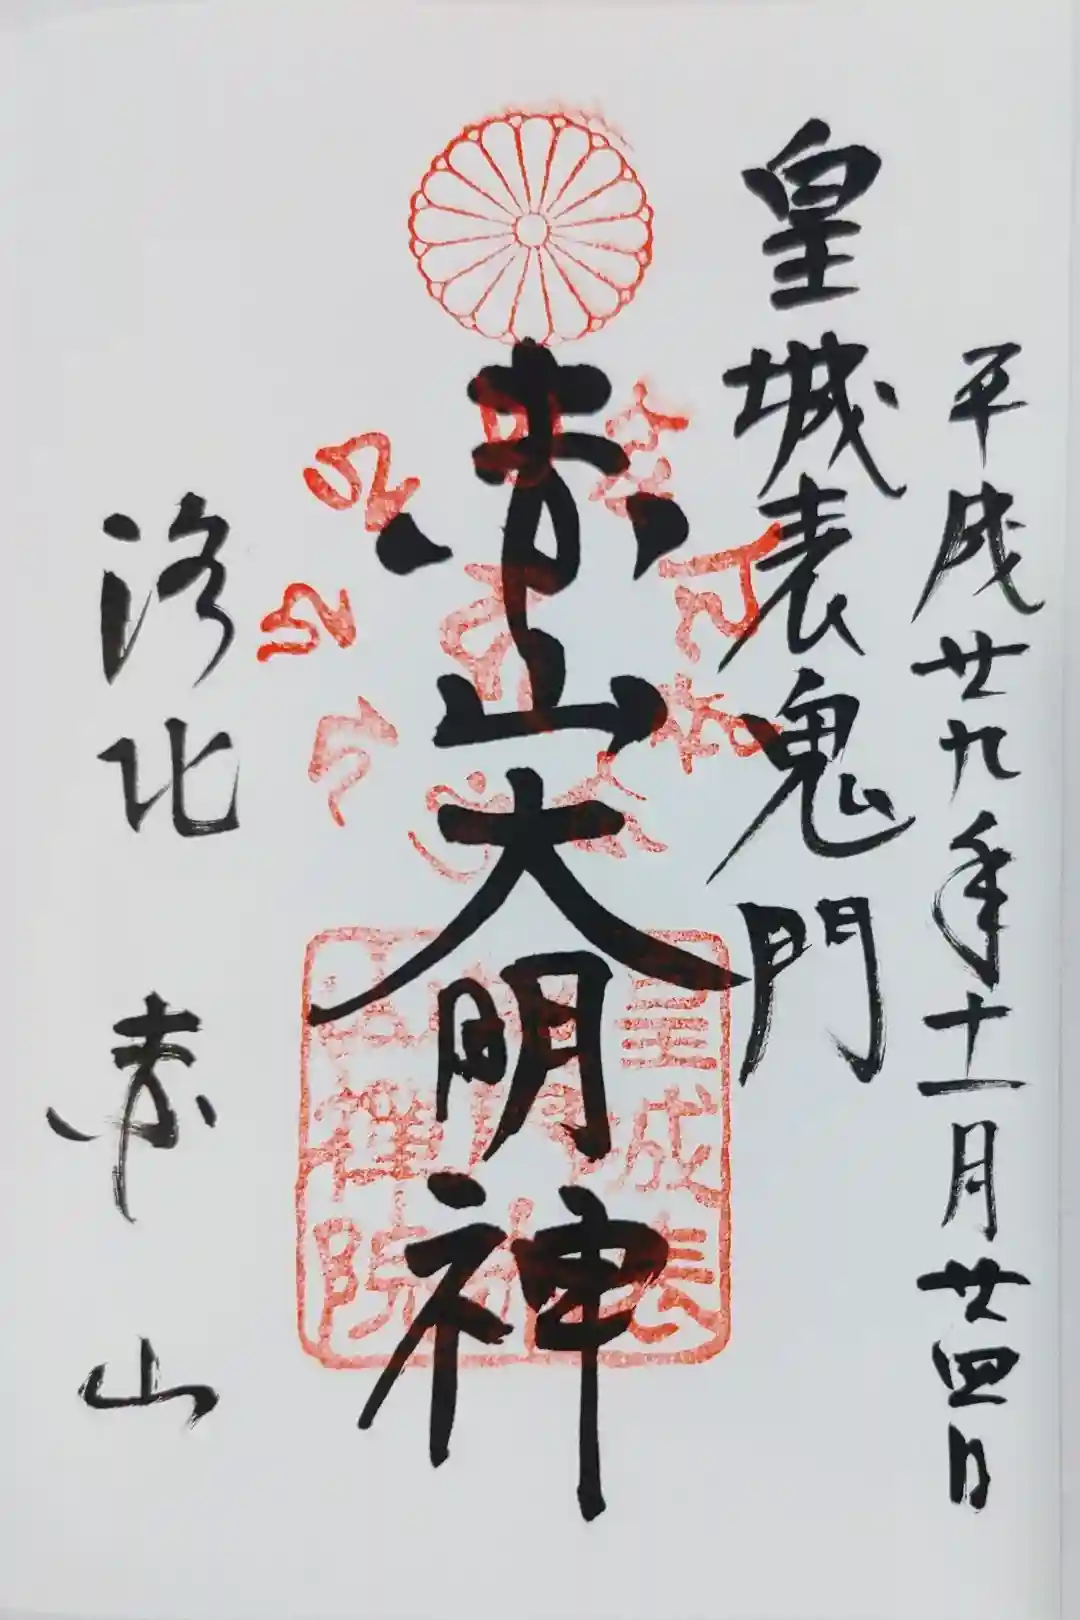 平成廿九年十一月廿四日
皇城表鬼門
赤山大明神
洛北 赤山
皇城表
禅院